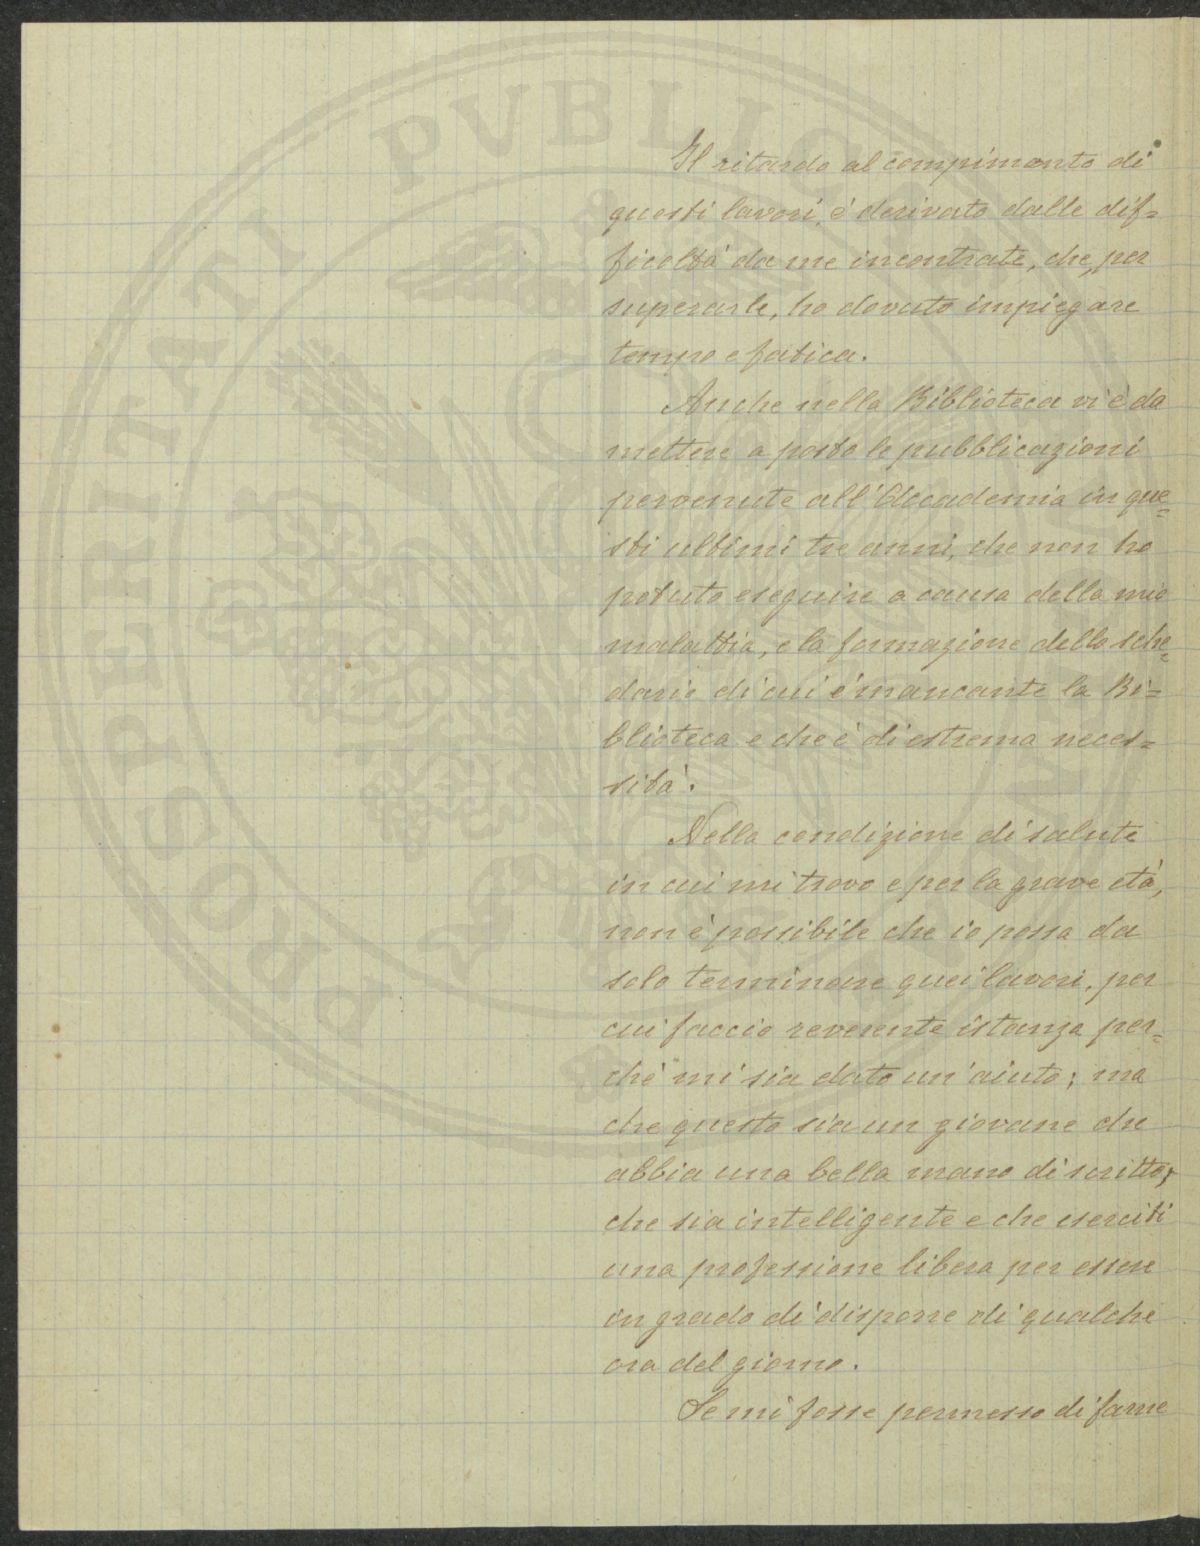 Il ritardo al compimento di
questi lavori, è derivato dalle dif=
ficoltà da me incontrate, che, per
superarle, ho dovuto impiegare
tempo e fatica.
Anche nella Biblioteca vi è da
mettere a posto le pubblicazioni
pervenute all'Accademia in que=
sti ultimi tre anni, che non ho
potuto eseguire a causa della mia
malattia, e la formazione dello sche=
dario di cui è mancante la Bi=
blioteca e che è di estrema neces=
sità.
Nella condizione di salute
in cui mi trovo e per la grave età,
non è possibile che io possa da
solo terminare quei lavori, per
cui faccio reverente istanza per=
chè mi sia dato un'aiuto; ma
che questo sia un giovane che
abbia una bella mano di scritto,
che sia intelligente e che eserciti
una professione libera per essere
in grado di disporre di qualche
ora del giorno.
Se mi fosse permesso di farne
PROSPERITATI PVBLICAE